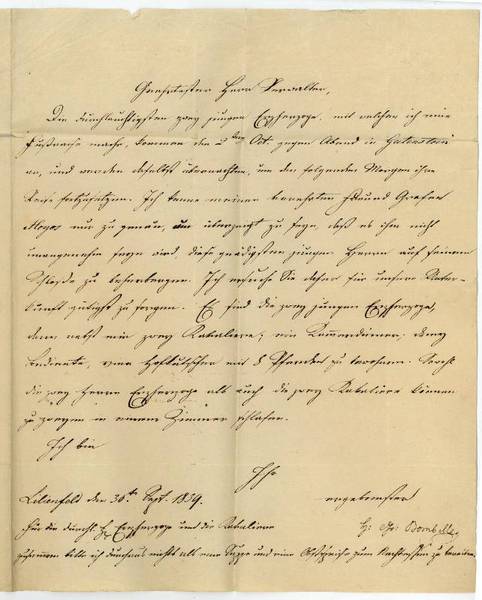 Geehrtester Herr Verwalter,
Die durchlauchtigsten zwey jungen Erzherzoge, mit welchen ich eine
Fußreise mache, kommen den 2ten Oct. gegen Abend in Gutenstein
an, und werden daselbst übernachten, um den folgenden Morgen ihre
Reise fortzusetzen. Ich kenne meinen verehrten Freund Grafen
Hoyos nur zu genau, um überzeugt zu seyn, daß es ihm nicht
unangenehm seyn wird, diese gnädigsten jungen Herrn auf seinem
Schloße zu beherbergen. Ich ersuche Sie daher für unsere Unter-
kunft gütigst zu sorgen. Es sind die zwey jungen Erzherzoge,
dann nebst mir zwey Kavaliere; ein Kammerdiener; 
Bediente, Hofkutscher mit 8 Pferden zu Sowohl
die zwey Herrn Erzherzoge als auch die zwey Kavaliere können
zu zweyen in einem Zimmer schlafen.
Ich bin
Ihr
Lilienfeld den 30ten Sept. 1839. ergebenster
Für die durchl. H. Erzherzoge und die Kavaliere H. Gr. Bombelles
zusammen bitte ich durchaus nichts als eine Suppe und eine Obstspeise zum Nachtessen zu bereiten.